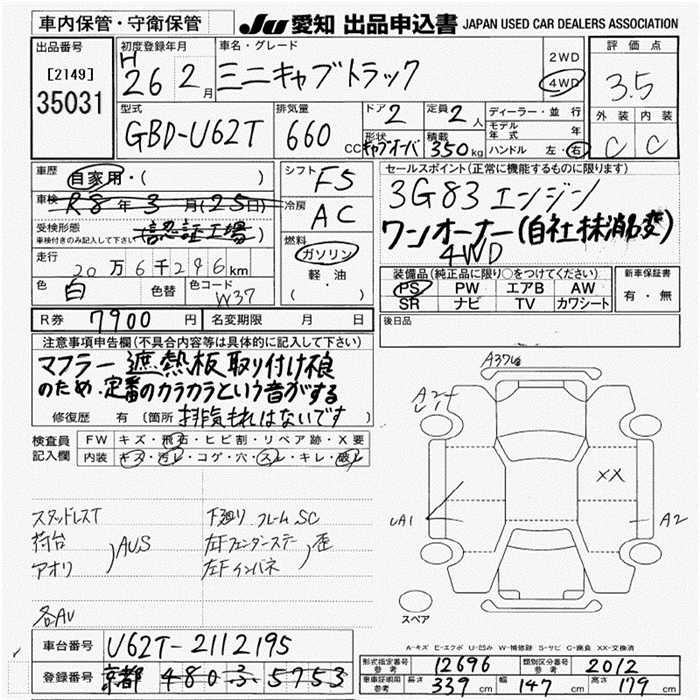 車内保管・守衛保管
JU 愛知 出品申込書 JAPAN USED CAR DEALERS ASSOCIATION
出品番号
[2149]
35031
初度登録年月
H
26 2月
車名・グレード
ミニキャブトラック
2WD
4WD
評価点
3.5
外装 内装
C C
型式
GBD-U62T
排気量
660 CC
ドア 2
定員 2人
形状 キャブオーバ
積載 350kg
ディーラー・並行
モデル年式 年
ハンドル 左・右
車歴
自家用・( )
車検
R8年3月(25日)
受検形態
車検付きのみ記入して下さい
認証工場
走行
20万6千296km
色 白 色替 色コード W37
シフト F5
冷房 AC
燃料
ガソリン
軽油
( )
セールスポイント(正常に機能するものに限ります)
3G83 エンジン
ワンオーナー(自社抹消変)
4WD
装備品(純正品に限り〇をつけてください)
PS PW エアB AW
SR ナビ TV カワシート
新車保証書
有・無
R券 7900円 名変期限 月 日
後日品
注意事項申告欄(不具合内容等は具体的に記入して下さい)
マフラー 遮熱板取り付け痕
のため、定番のカラカラという音がする
修復歴 有 (箇所 排気もれはないです )
検査員
記入欄
FW キズ・飛石・ヒビ割・リペア跡・X要
内装 キズ・汚レ・コゲ・穴・スレ・キレ・破レ
スタッドレスT
荷台
アオリ
AUS
各AU
下廻り フレームSC
左Fフェンダーステー
左Fインパネ
歪
A2
A2
UA1
XX
スペア
A-キズ E-エクボ U-凹み W-補修跡 S-サビ C-腐食 XX-交換済
車台番号 U62T-2112195
登録番号 京都 480 ふ 5753
形式指定番号 参考 12696
類別区分番号 参考 2012
車庫証明用 参考 長さ 339cm 幅 147cm 高さ 179cm